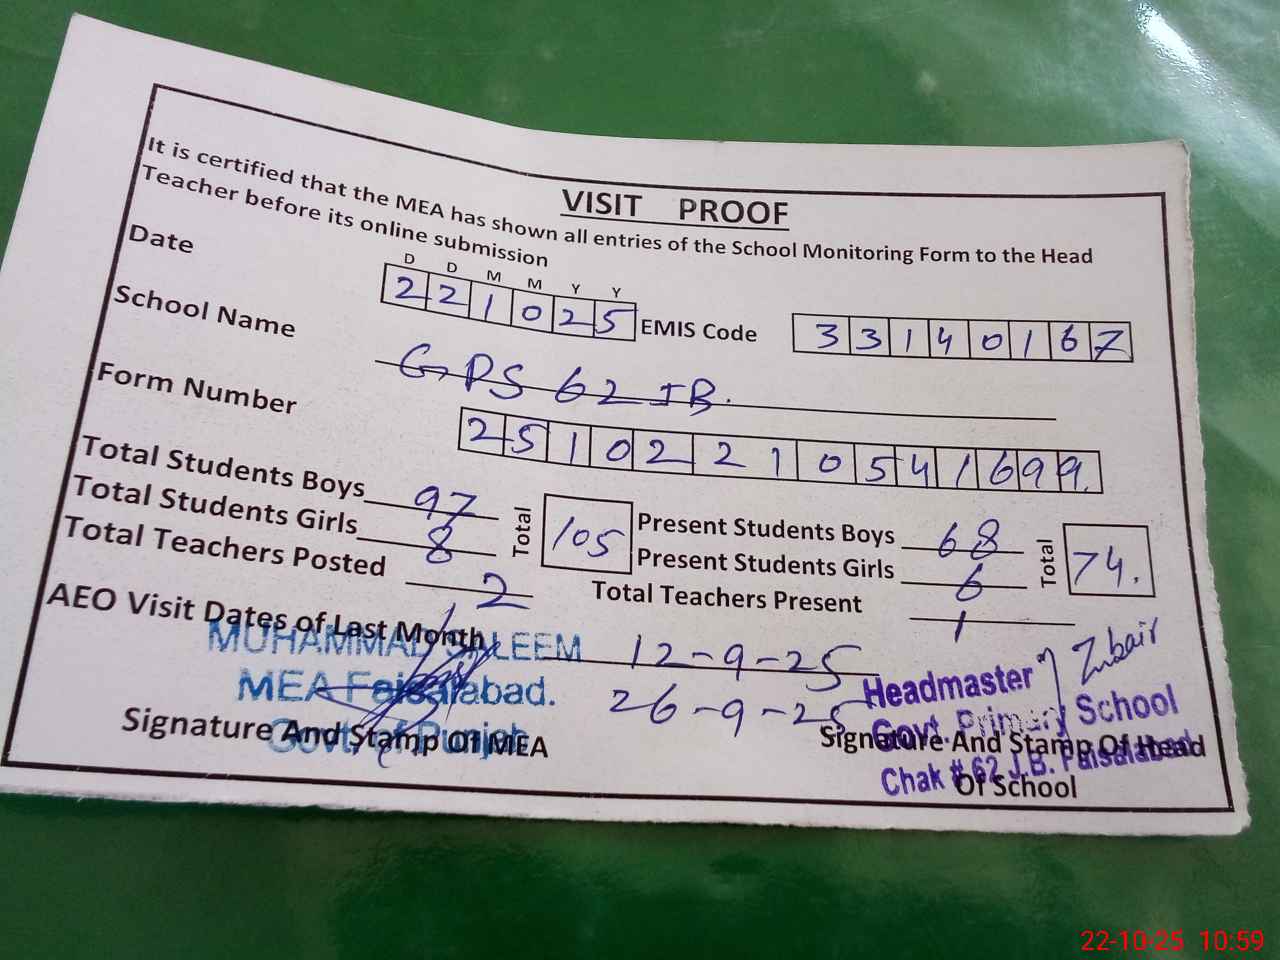 VISIT PROOF
It is certified that the MEA has shown all entries of the School Monitoring Form to the Head
Teacher before its online submission
D D M M Y Y
Date 221025 EMIS Code 33140167
School Name GPS 62 JB.
Form Number 25102210541699.
Total Students Boys 97 Total 105 Present Students Boys 68 Total 74.
Total Students Girls 8 Present Students Girls 6
Total Teachers Posted 2 Total Teachers Present 1
AEO Visit Dates of Last Month 12-9-25
26-9-25
MUHAMMAD SALEEM
MEA Faisalabad.
Govt. of Punjab
Signature And Stamp Of MEA
Zubair
Headmaster
Govt. Primary School
Chak # 62 J.B. Faisalabad
Signature And Stamp Of Head
Of School
22-10-25 10:59